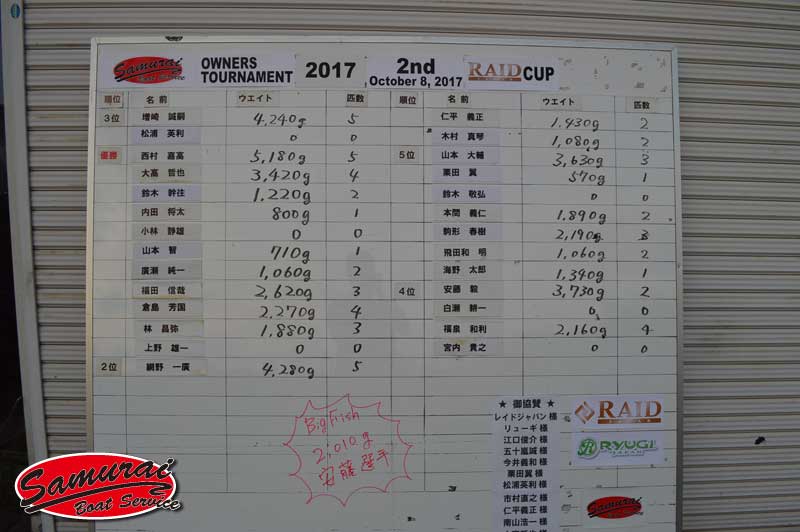 Samurai Boat Service OWNERS TOURNAMENT 2017 2nd October 8, 2017 RAID CUP
順位 名前 ウエイト 匹数 順位 名前 ウエイト 匹数
3位 増崎 誠嗣 4,240g 5 仁平 義正 1,430g 2
松浦 英利 0 0 木村 真琴 1,080g 2
優勝 西村 嘉高 5,180g 5 5位 山本 大輔 3,630g 3
大高 哲也 3,420g 4 栗田 翼 570g 1
鈴木 幹往 1,220g 2 鈴木 敬弘 0 0
内田 将太 800g 1 本間 義仁 1,890g 2
小林 静雄 0 0 駒形 春樹 2,190g 3
山本 智 710g 1 飛田和 明 1,060g 2
廣瀬 純一 1,060g 2 海野 太郎 1,340g 1
福田 信哉 2,620g 3 4位 安藤 毅 3,730g 2
倉島 芳国 2,270g 4 白瀬 耕一 0 0
林 昌弥 1,880g 3 福泉 和利 2,160g 4
上野 雄一 0 0 宮内 貴之 0 0
2位 網野 一廣 4,280g 5
Big Fish
2,010g
安藤選手
★ 御協賛 ★
レイドジャパン 様
リューギ 様
江口俊介 様
五十嵐誠 様
今井義和 様
栗田翼 様
松浦英利 様
市村直之 様
仁平義正 様
南山浩一 様
RAID
RYUGI
Samurai Boat Service
Samurai
Boat Service